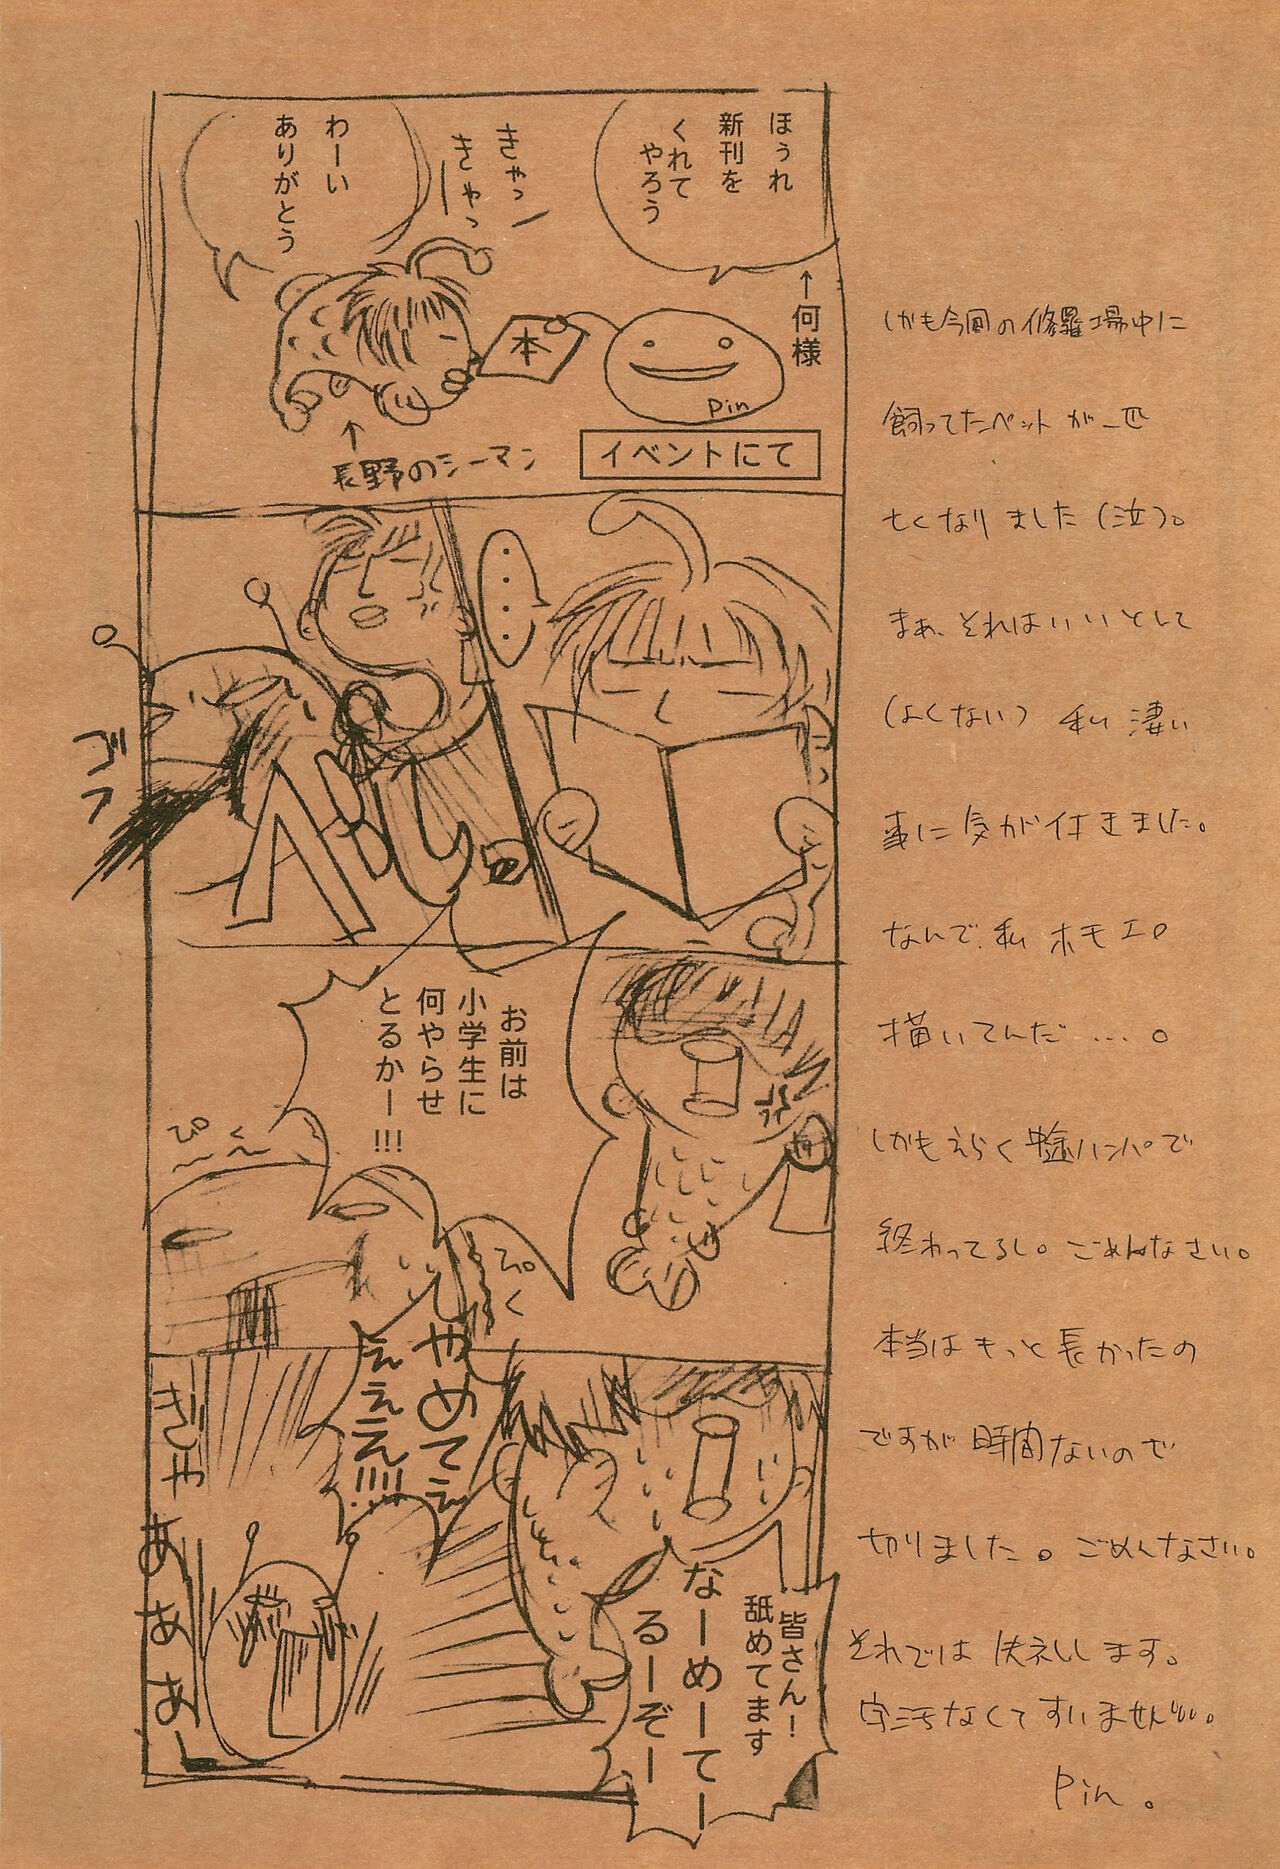 ほぅれ
新刊を
くれて
やろう
↑何様
きゃっ
きゃっ
わーい
ありがとう
本
Pin
↑
長野のシーマン
イベントにて
・・・・
ゴフ
お前は
小学生に
何やらせ
とるかー!!!
ぴ〜くぇ
ぴく
皆さん!
舐めてます
なーめーてー
るーぞー
やめてぇ
ぇぇえ!!!!
ぎゃああああー
しかも今回の修羅場中に
飼ってたペットが一匹
亡くなりました(泣)。
まぁ、それはいいとして
(よくない) 私 凄い
事に気が付きました。
なんで、私 ホモエロ
描いてんだ…。
しかもえらく中途ハンパで
終わってるし。ごめんなさい。
本当はもっと長かったの
ですが時間ないので
切りました。ごめんなさい。
それでは失礼します。
字汚なくてすいません
Pin。